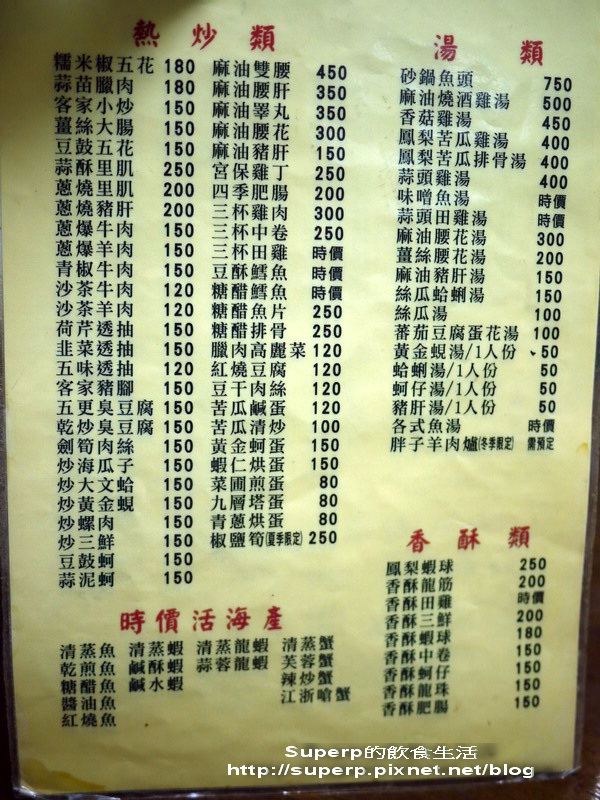 熱炒類
糯米椒五花 180
蒜苗臘肉 180
客家小炒 150
薑絲大腸 150
豆鼓五花 150
蒜酥里肌 250
蔥燒里肌 200
蔥燒豬肝 200
蔥爆牛肉 150
蔥爆羊肉 150
青椒牛肉 150
沙茶牛肉 120
沙茶羊肉 120
荷芹透抽 150
韭菜透抽 150
五味透抽 150
客家豬腳 150
五更臭豆腐 150
乾炒臭豆腐 150
劍筍肉絲 150
炒海瓜子 150
炒大文蛤 150
炒黃金蜆 150
炒螺肉 150
炒三鮮 150
豆鼓蚵 150
蒜泥蚵 150
麻油雙腰 450
麻油腰肝 350
麻油睪丸 350
麻油腰花 300
麻油豬肝 150
宮保雞丁 250
四季肥腸 200
三杯雞肉 300
三杯中卷 250
三杯田雞 時價
豆酥鱈魚 時價
糖醋鱈魚 時價
糖醋魚片 250
糖醋排骨 250
臘肉高麗菜 120
紅燒豆腐 120
豆干肉絲 120
苦瓜鹹蛋 120
苦瓜清炒 100
黃金蚵蛋 150
蝦仁烘蛋 150
菜圃煎蛋 80
九層塔蛋 80
青蔥烘蛋 80
椒鹽筍(夏季限定) 250
湯類
砂鍋魚頭 750
麻油燒酒雞湯 500
香菇雞湯 450
鳳梨苦瓜雞湯 400
鳳梨苦瓜排骨湯 400
蒜頭雞湯 400
味噌魚湯 時價
蒜頭田雞湯 時價
麻油腰花湯 300
薑絲腰花湯 200
麻油豬肝湯 150
絲瓜蛤蜊湯 150
絲瓜湯 100
蕃茄豆腐蛋花湯 100
黃金蜆湯/1人份 50
蛤蜊湯/1人份 50
蚵仔湯/1人份 50
豬肝湯/1人份 50
各式魚湯 時價
胖子羊肉爐(冬季限定) 需預定
香酥類
鳳梨蝦球 250
香酥龍筋 200
香酥田雞 時價
香酥三鮮 200
香酥蝦球 180
香酥中卷 150
香酥蚵仔 150
香酥龍珠 150
香酥肥腸 150
時價活海產
清蒸魚 清蒸蝦 清蒸龍蝦 清蒸蟹
乾煎魚 鹹酥蝦 蒜蓉龍蝦 芙蓉蟹
糖醋魚 鹹水蝦 辣炒蟹
醬油魚 江浙嗆蟹
紅燒魚
Superp的飲食生活
http://superp.pixnet.net/blog